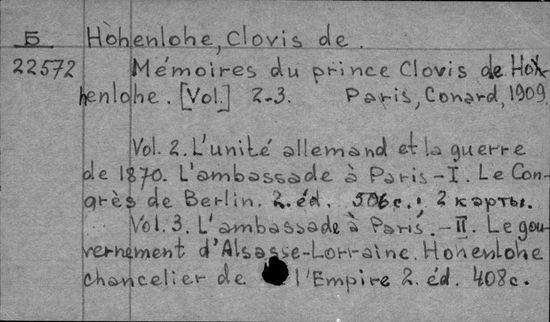 Б Hohenlohe, Clovis de.
22572 Mémoires du prince Clovis de Hohenlohe. [Vol.] 2-3. Paris, Conard, 1909
Vol. 2. L'unité allemand et la guerre
de 1870. L'ambassade à Paris - I. Le Con-
grès de Berlin. 2. éd. 506 c.; 2 карты.
Vol. 3. L'ambassade à Paris. - II. Le gou-
vernement d'Alsasse-Lorraine. Hohenlohe
chancelier de l'Empire 2. éd. 408 c.